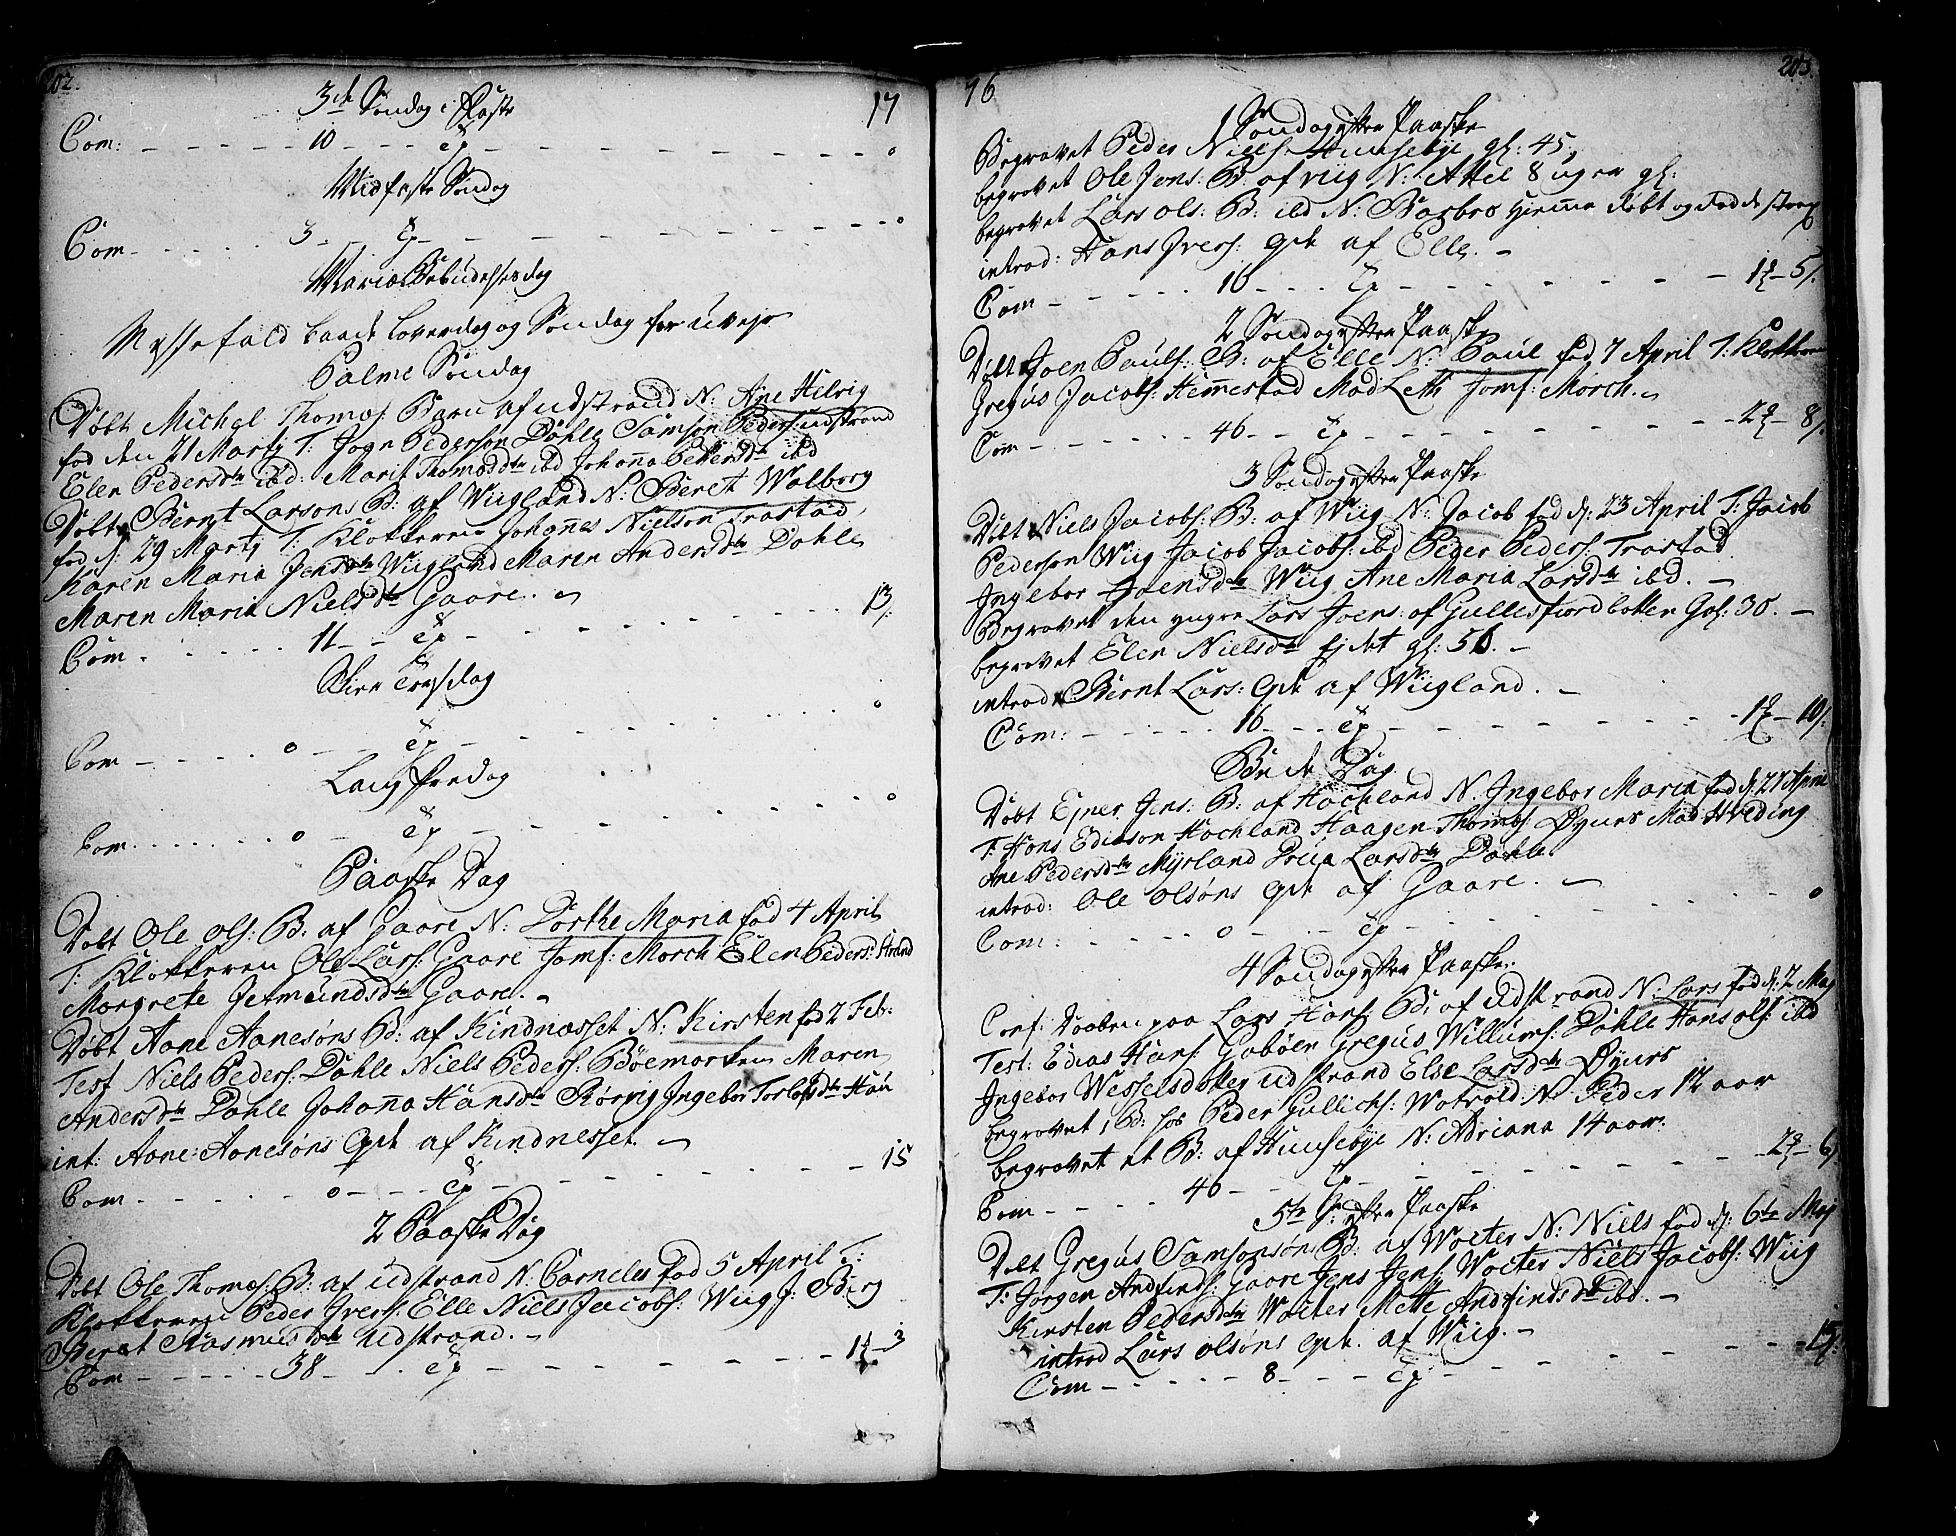 202.
3de Søndag i Faste 17
Com: 10 Ex 0
Midfaste Søndag
Com 3 Ex 0
Mariæ Bebudelsesdag
Messefald baade Løverdag og Søndag for uvejr
Palme Søndag
Døbt Michel Thomæs: Barn af udstrand N: Ane Hilvig
fød den 21 Martj T: Jogn Pederson Dahle Samson Peders: udstrand
Elen Pedersdtr ibd: Marit Thomædtr ibd Johanna Pettersdtr ibd
Døbt Bernt Larsons B: af Wiigland N: Beret Walborg
fød d: 29 Martj T: Klokkeren Johanes Nielson Trastad,
Karen Maria Jensdtr Wiigland Maren Andersdtr Dahle
Maren Maria Nielsdtr Gaare.
Com 11 Ex 13
Skier Torsdag
Com 0 Ex 0
Lang fredag
Com 0 Ex 0
Paaske Dag
Døbt Ole Ols: B: af Gaare N: Dorthe Maria fød 4 April
T: Klokkeren Ole Lars: Gaare Jomf: Morch Elen Peders: Strand
Margrete Jetmundsdtr Gaare.
Døbt Aane Aanesøns B: af Kindnæsset N: Kirsten fød 2 Feb:
Test Niels Peders: Dahle Niels Peders: Bøemarken Maren
Andersdtr Dahle Johanna Hansdtr Rørvig Ingebor Torlefsdtr Hau
int: Aane Aanesøns Qvt af Kindnesset.
Com 0 Ex 15
2 Paaske Dag
Døbt Ole Thomæs: B: af udstrand N: Carneles fød 5 April T:
Klokkeren Peder Ivers: Elle Niels Jacobs: Wiig J: Berg
Beret Rasmusdtr udstrand.
Com 38 Ex 1-3
203
76
1 Søndag efter Paaske
Begravet Peder Niels: Huusebye gl: 45,
begravet Ole Jens: B: af wiig N: Attel 8 uger gl:
begravet Lars Ols: B: ibd N: Barbro hjemme døbt og døde strax
introd: Hans Ivers: Qvt af Elle.
Com 16 Ex 1-5
2 Søndag efter Paaske
Døbt Joen Pauls: B: af Elle N: Paul fød 7 April T: Klokkeren
Gregus Jacobs: Hemmestad Mad Leth Jomf: Morch.
Com 46 Ex 2-8
3 Søndag efter Paaske
Døbt Niels Jacobs: B: af Wiig N: Jacob fød d: 23 April T: Jacob
Pederson Wiig Jacob Jacobs: ibd Peder Peders: Trastad
Ingebor Joensdtr Wiig Ane Maria Larsdtr ibd.
Begravet den yngre Lars Joens: af Gullesfiordbotten Gl: 30.
begravet Elen Nielsdtr gl: 50.
introd Bernt Lars: Qvt af Wiigland.
Com: 16 Ex 1-10
Bede Dag
Døbt Ejner Jens: B: af Hochland N: Ingebor Maria fød d: 27 April
T: Hans Ediason Hochland Haagen Thomæs: Øynes Mad Hveding
Ane Pedersdtr Myrland Larsdtr Dahle
introd: Ole Olsøns Qvt af Gaare.
Com: 0 Ex 0
4 Søndag efter Paaske:
Conf: Daaben paa Lars Hans: B: af udstrand N: Lars fød d: 2 Maj
Test: Edias Hans: Gabøen Gregus Willums: Dahle Hans Ols: ibd
Ingebor Wesselsdotter udstrand Else Larsdtr Øynes
begravet 1 B: hos Peder Gullichs: Watvold N: Peder 12 aar
begravet et B: af Huusebye N: Adriana 14 aar.
Com 46 Ex 2-6
5te S: efter Paaske
Døbt Gregus Samsonsøns B: af Wolter N: Niels fød d: 6te Maj
T: Jørgen Andfinds: Gaare Jens Jens: Wolter Niels Jacobs: Wiig
Kirsten Pedersdtr Wolter Mette Andfindsdtr ibd.
introd Lars Olsøns Qvt. af Wiig.
Com 8 Ex 15